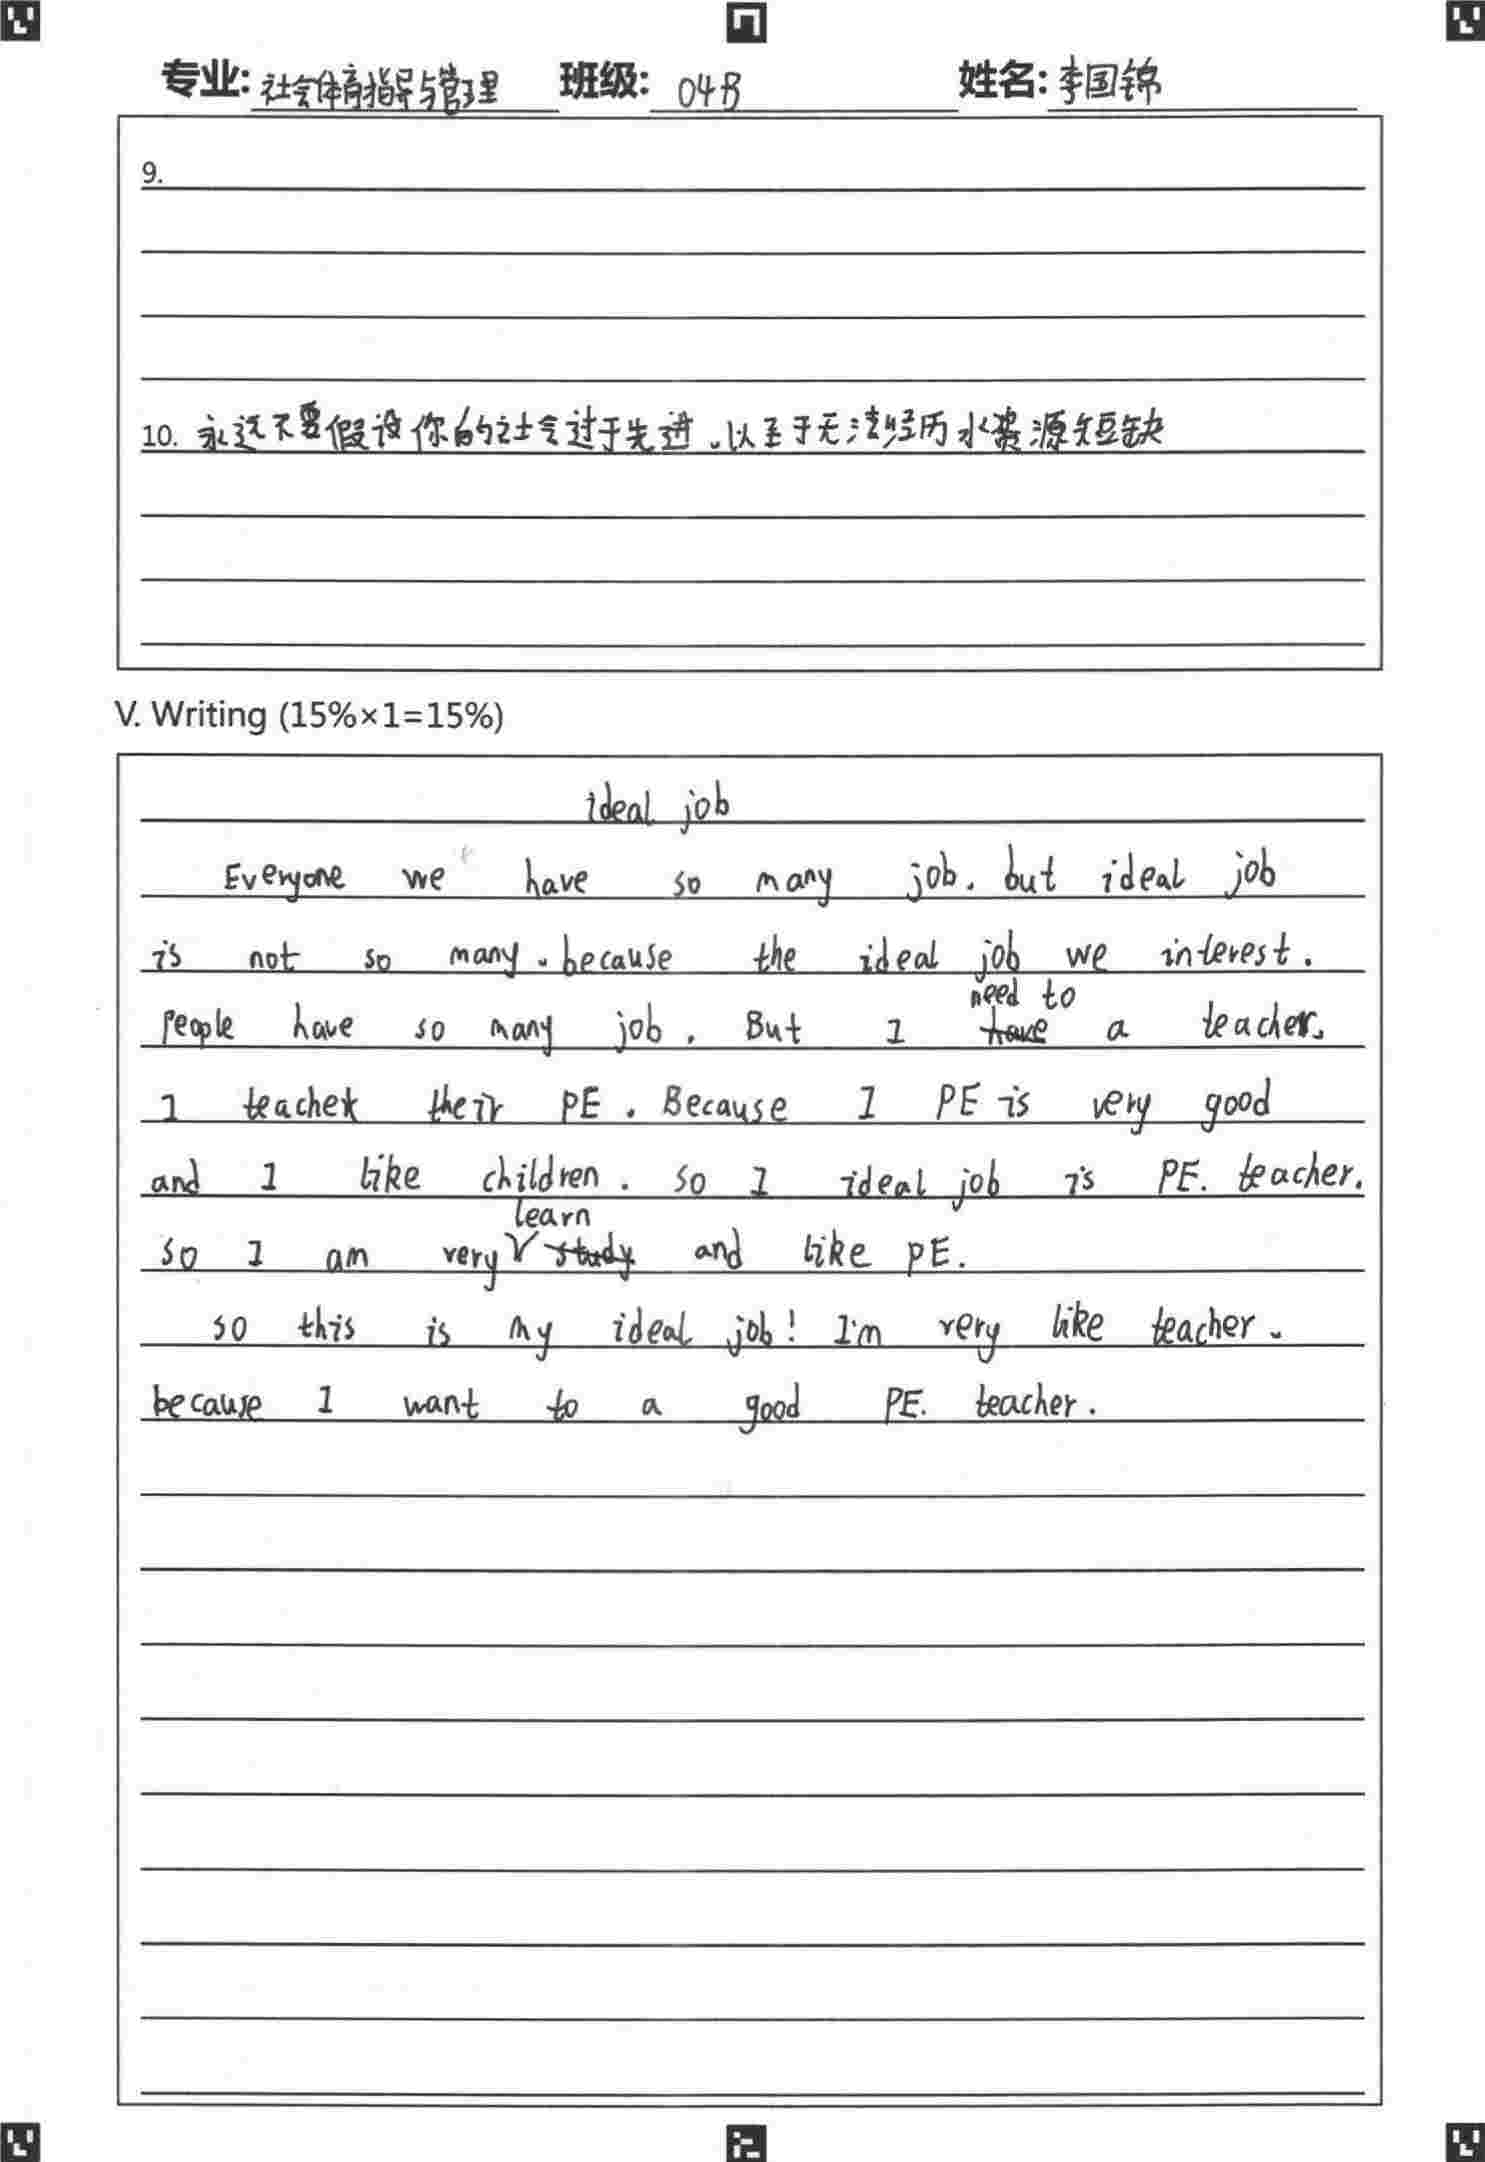 专业: 社会体育指导与管理 班级: 04B 姓名: 李国锦
9.
10. 永远不要假设你的社会过于先进,以至于无法经历水资源短缺
V. Writing (15%×1=15%)
ideal job
Everyone we have so many job. but ideal job
is not so many. because the ideal job we interest.
people have so many job. But I need to a teacher.
I teacher their PE. Because I PE is very good
and I like children. so I ideal job is PE. teacher.
so I am very learn and like PE.
so this is my ideal job! I'm very like teacher.
because I want to a good PE. teacher.